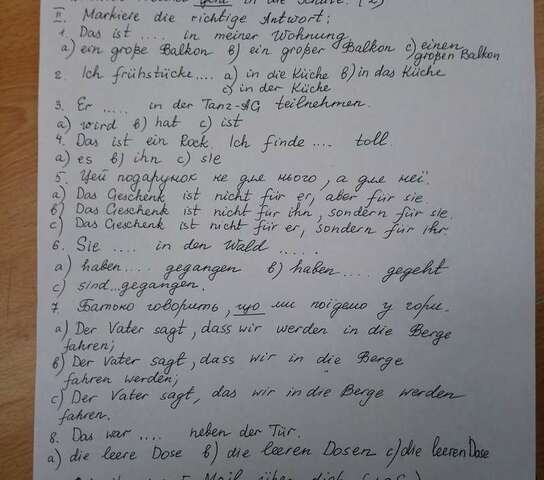 in die Schule. (2)
II. Markiere die richtige Antwort:
1. Das ist .... in meiner Wohnung
a) ein große Balkon в) ein großer Balkon c) einen
großen Balkon
2. Ich frühstücke.... a) in die Küche в) in das Küche
c) in der Küche
3. Er ..... in der Tanz-AG teilnehmen.
a) wird в) hat c) ist
4. Das ist ein Rock. Ich finde .... toll.
a) es в) ihn c) sie
5. Цей подарунок не для нього, а для неї.
a) Das Geschenk ist nicht für er, aber für sie.
в) Das Geschenk ist nicht für ihn, sondern für sie.
c) Das Geschenk ist nicht für er, sondern für ihr.
6. Sie .... in den Wald .....
a) haben.... gegangen в) haben.... gegeht
c) sind...gegangen.
7. Батько говорить, що ми поїдемо у гори.
a) Der Vater sagt, dass wir werden in die Berge
fahren;
в) Der Vater sagt, dass wir in die Berge
fahren werden;
c) Der Vater sagt, das wir in die Berge werden
fahren.
8. Das war .... neben der Tür.
a) die leere Dose в) die leeren Dosen c) die leeren Dose